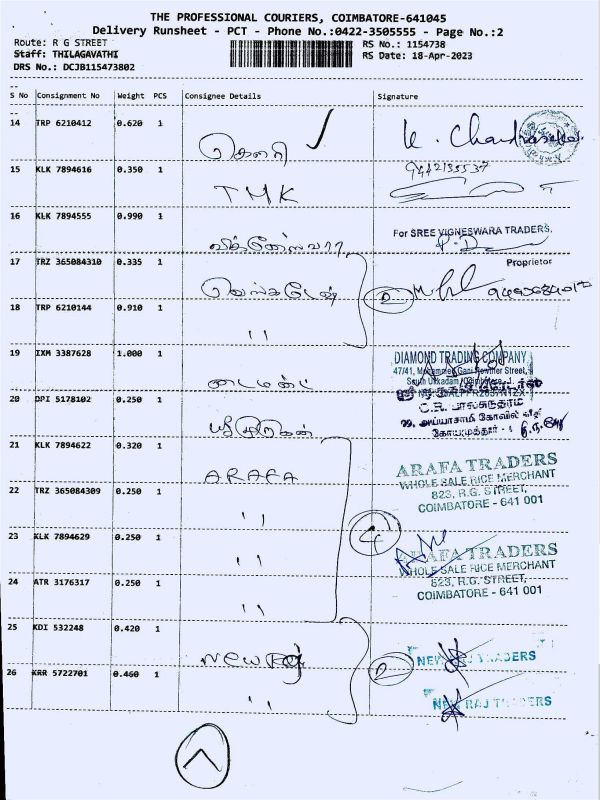 THE PROFESSIONAL COURIERS, COIMBATORE-641045
Delivery Runsheet - PCT - Phone No.:0422-3505555 - Page No.:2
Route: R G STREET
RS No.: 1154738
Staff: THILAGAVATHI
RS Date: 18-Apr-2023
DRS No.: DCJB115473802
S No Consignment No Weight PCS Consignee Details Signature
14 TRP 6210412 0.620 1 கௌரி K. Chandrasekar
9442135537
15 KLK 7894616 0.350 1 TMK
16 KLK 7894555 0.990 1 For SREE VIGNESWARA TRADERS,
Proprietor
17 TRZ 365084310 0.335 1 வெங்கடேஸ் 2
18 TRP 6210144 0.910 1 ''
19 IXM 3387628 1.000 1 டைமண்ட் DIAMOND TRADING COMPANY
47/41, Gani Rowther Street,
South Ukkadam, Coimbatore - 1.
20 DPI 5178102 0.250 1 ஸ்ரீ முருகன் C.R. பாலசுந்தரம்
99, அய்யாசாமி கோவில் வீதி
கோயமுத்தூர் - 1
21 KLK 7894622 0.320 1 ARAFA ARAFA TRADERS
WHOLE SALE RICE MERCHANT
823, R.G. STREET,
COIMBATORE - 641 001
22 TRZ 365084309 0.250 1 ''
4
23 KLK 7894629 0.250 1 '' ARAFA TRADERS
WHOLE SALE RICE MERCHANT
823, R.G. STREET,
COIMBATORE - 641 001
24 ATR 3176317 0.250 1 ''
25 KDI 532248 0.420 1 New Raj 2 NEW RAJ TRADERS
26 KRR 5722701 0.460 1 '' NEW RAJ TRADERS